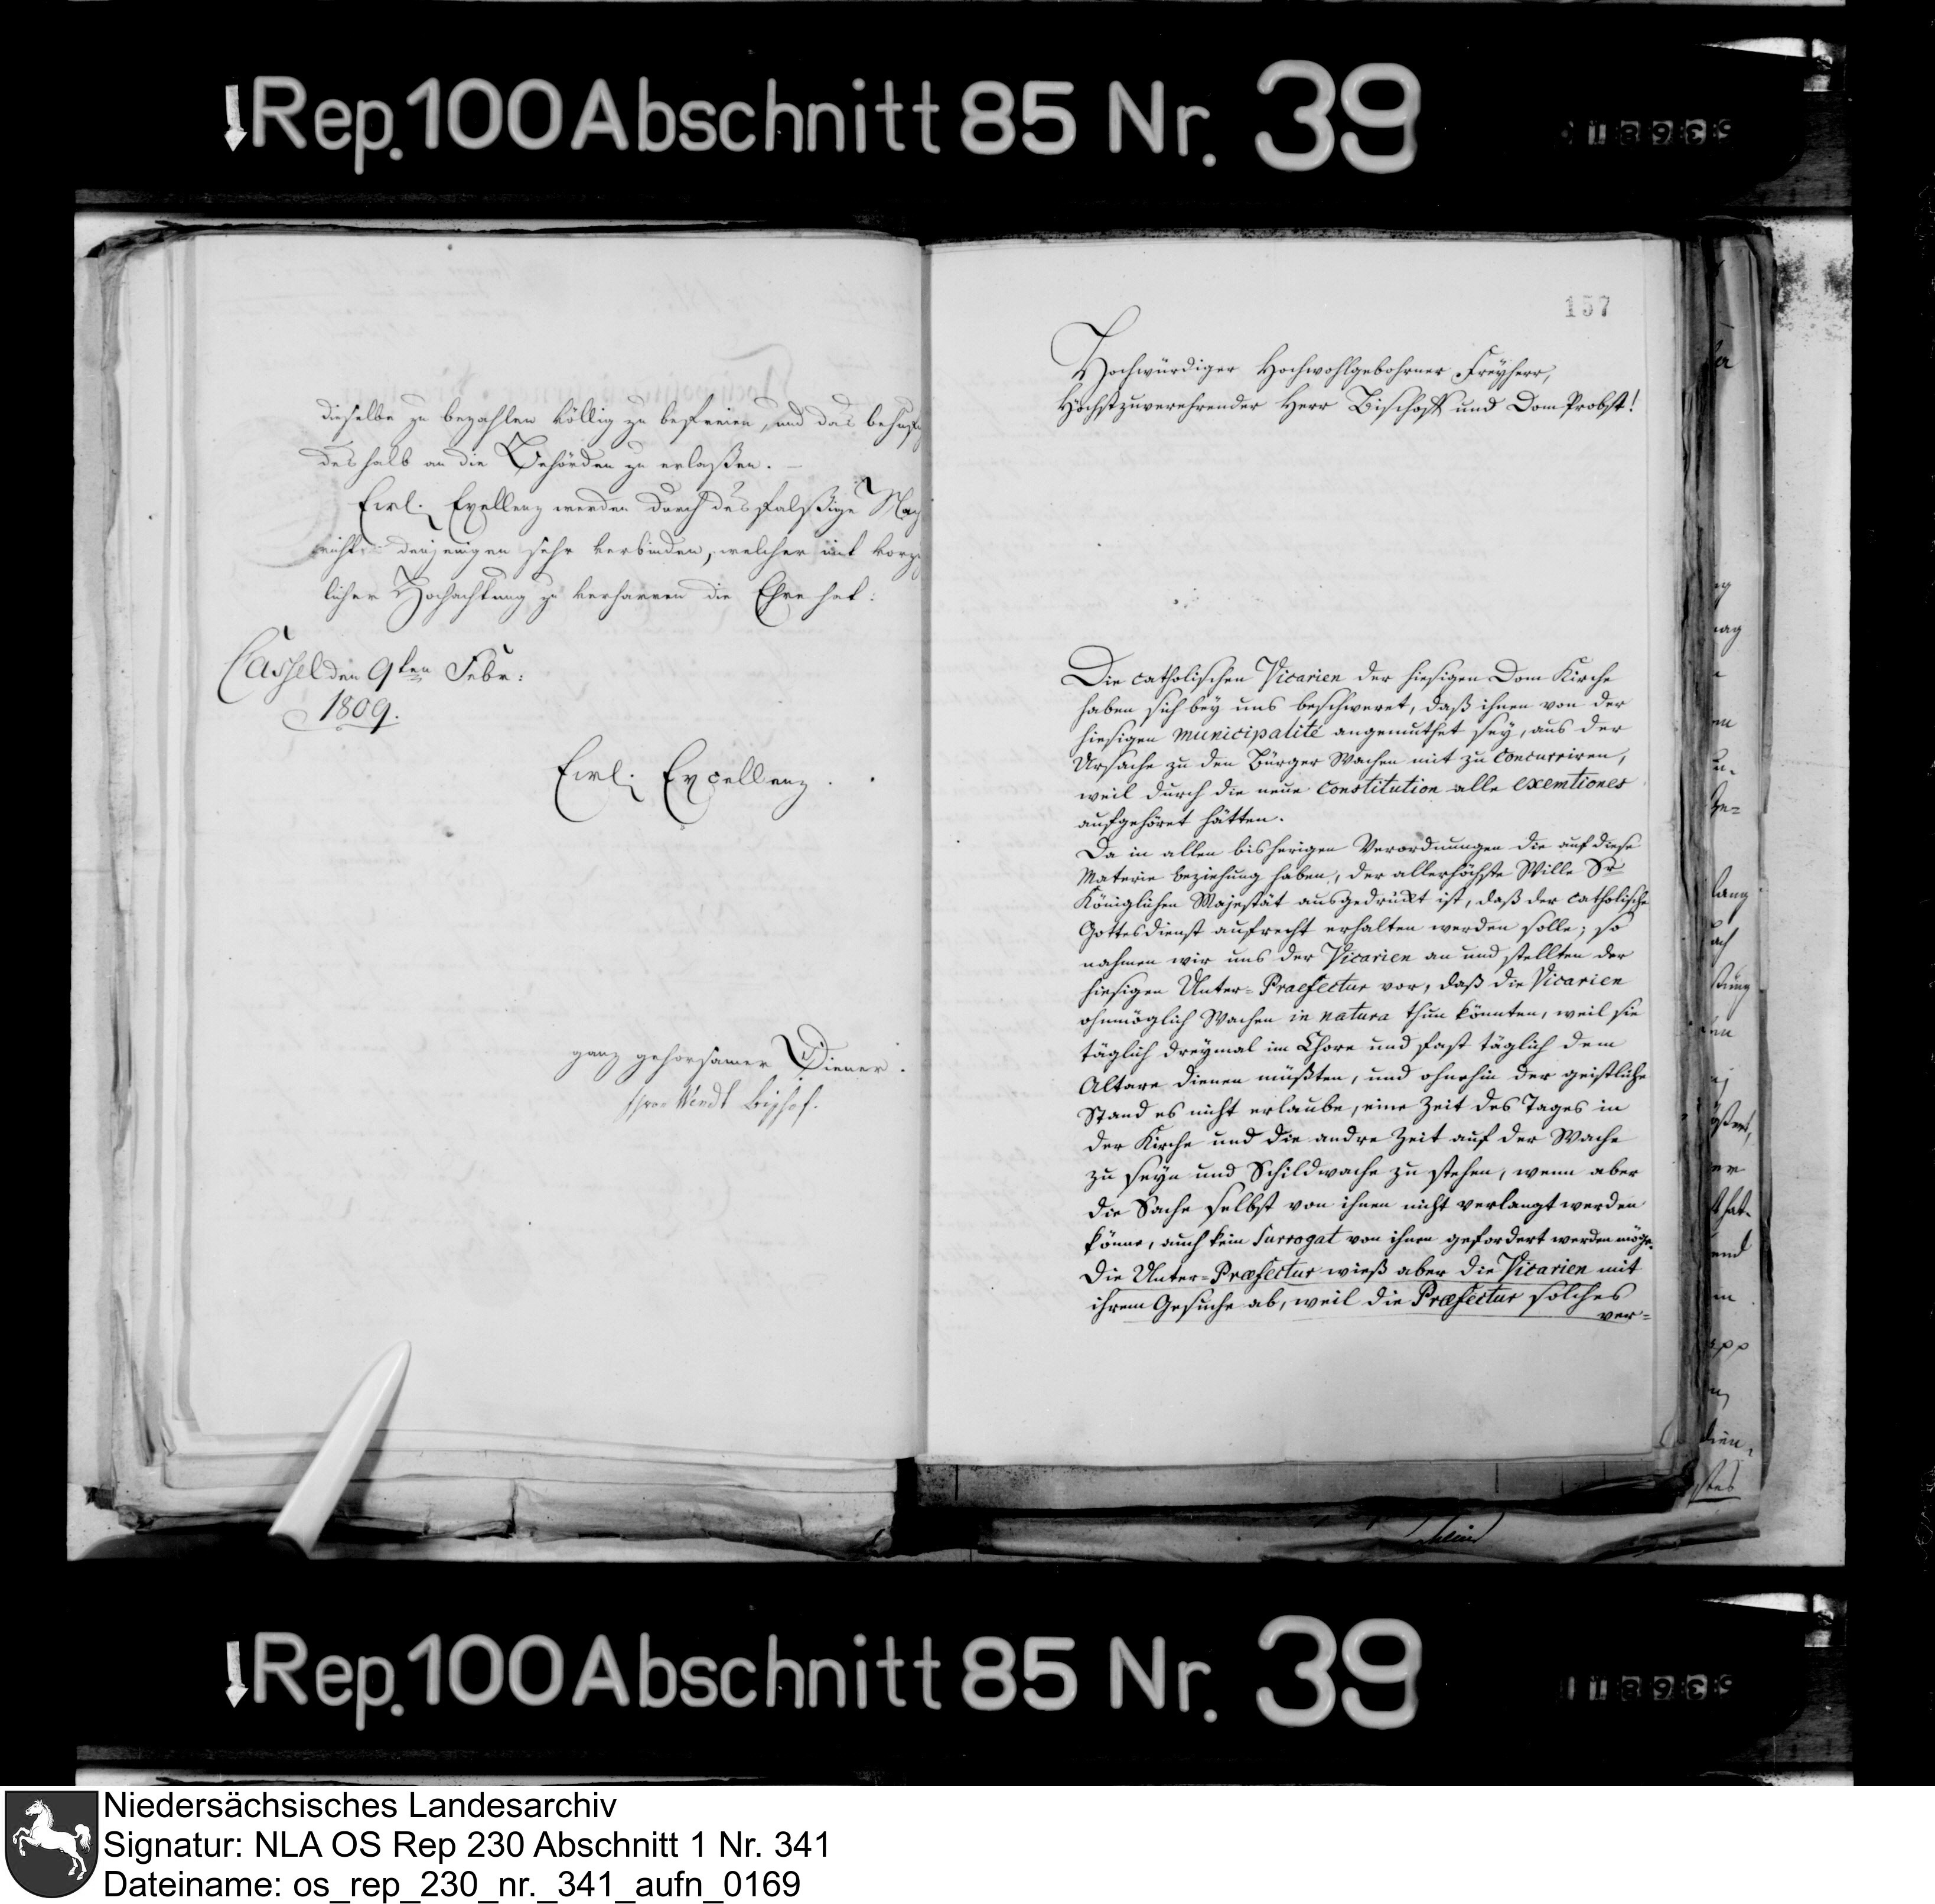 Rep. 100 Abschnitt 85 Nr. 39
dieselbe zu bezahlen völlig zu befreien, und das behufige
deshalb an die Behörden zu erlaßen. –
Ewl. Exellenz werden durch desfalsige Nach
richt denjenigen sehr verbinden, welcher mit vorzüg
licher Hochachtung zu verharren die Ehre hat:
Cassel den 9ten Febr:
1809.
Ewl. Excellenz.
ganz gehorsamer Diener.
Wendt Bischof.
157
Hochwürdiger Hochwohlgebohrner Freyherr,
Höchstzuverehrender Herr Bischoff und Dom Probst!
Die catholischen Vicarien der hiesigen Dom Kirche
haben sich bey uns beschweret, daß ihnen von der
hiesigen municipalité angemuthet sey, aus der
Ursache zu den Bürger Wachen mit zu concurriren,
weil durch die neue Constitution alle exemtiones
aufgehöret hätten.
Da in allen bisherigen Verordnungen die auf diese
Materie beziehung haben, der allerhöchste Wille Sr
Königlichen Majestät ausgedrückt ist, daß der catholische
Gottesdienst aufrecht erhalten werden solle; so
nahmen wir uns der Vicarien an und stellten der
hiesigen Unter-Praefectur vor, daß die Vicarien
ohnmöglich Wachen in natura thun könnten, weil sie
täglich dreymal im Chore und fast täglich dem
Altare dienen müßten, und ohnehin der geistliche
Stand es nicht erlaube, eine Zeit des Tages in
der Kirche und die andre Zeit auf der Wache
zu seyn und Schildwache zu stehen, wenn aber
die Sache selbst von ihnen nicht verlangt werden
könne, auch kein Surrogat von ihnen gefordert werden möge.
Die Unter-Præfectur wieß aber die Vicarien mit
ihrem Gesuche ab, weil die Præfectur solches
ver=
Rep. 100 Abschnitt 85 Nr. 39
Niedersächsisches Landesarchiv
Signatur: NLA OS Rep 230 Abschnitt 1 Nr. 341
Dateiname: os_rep_230_nr._341_aufn_0169